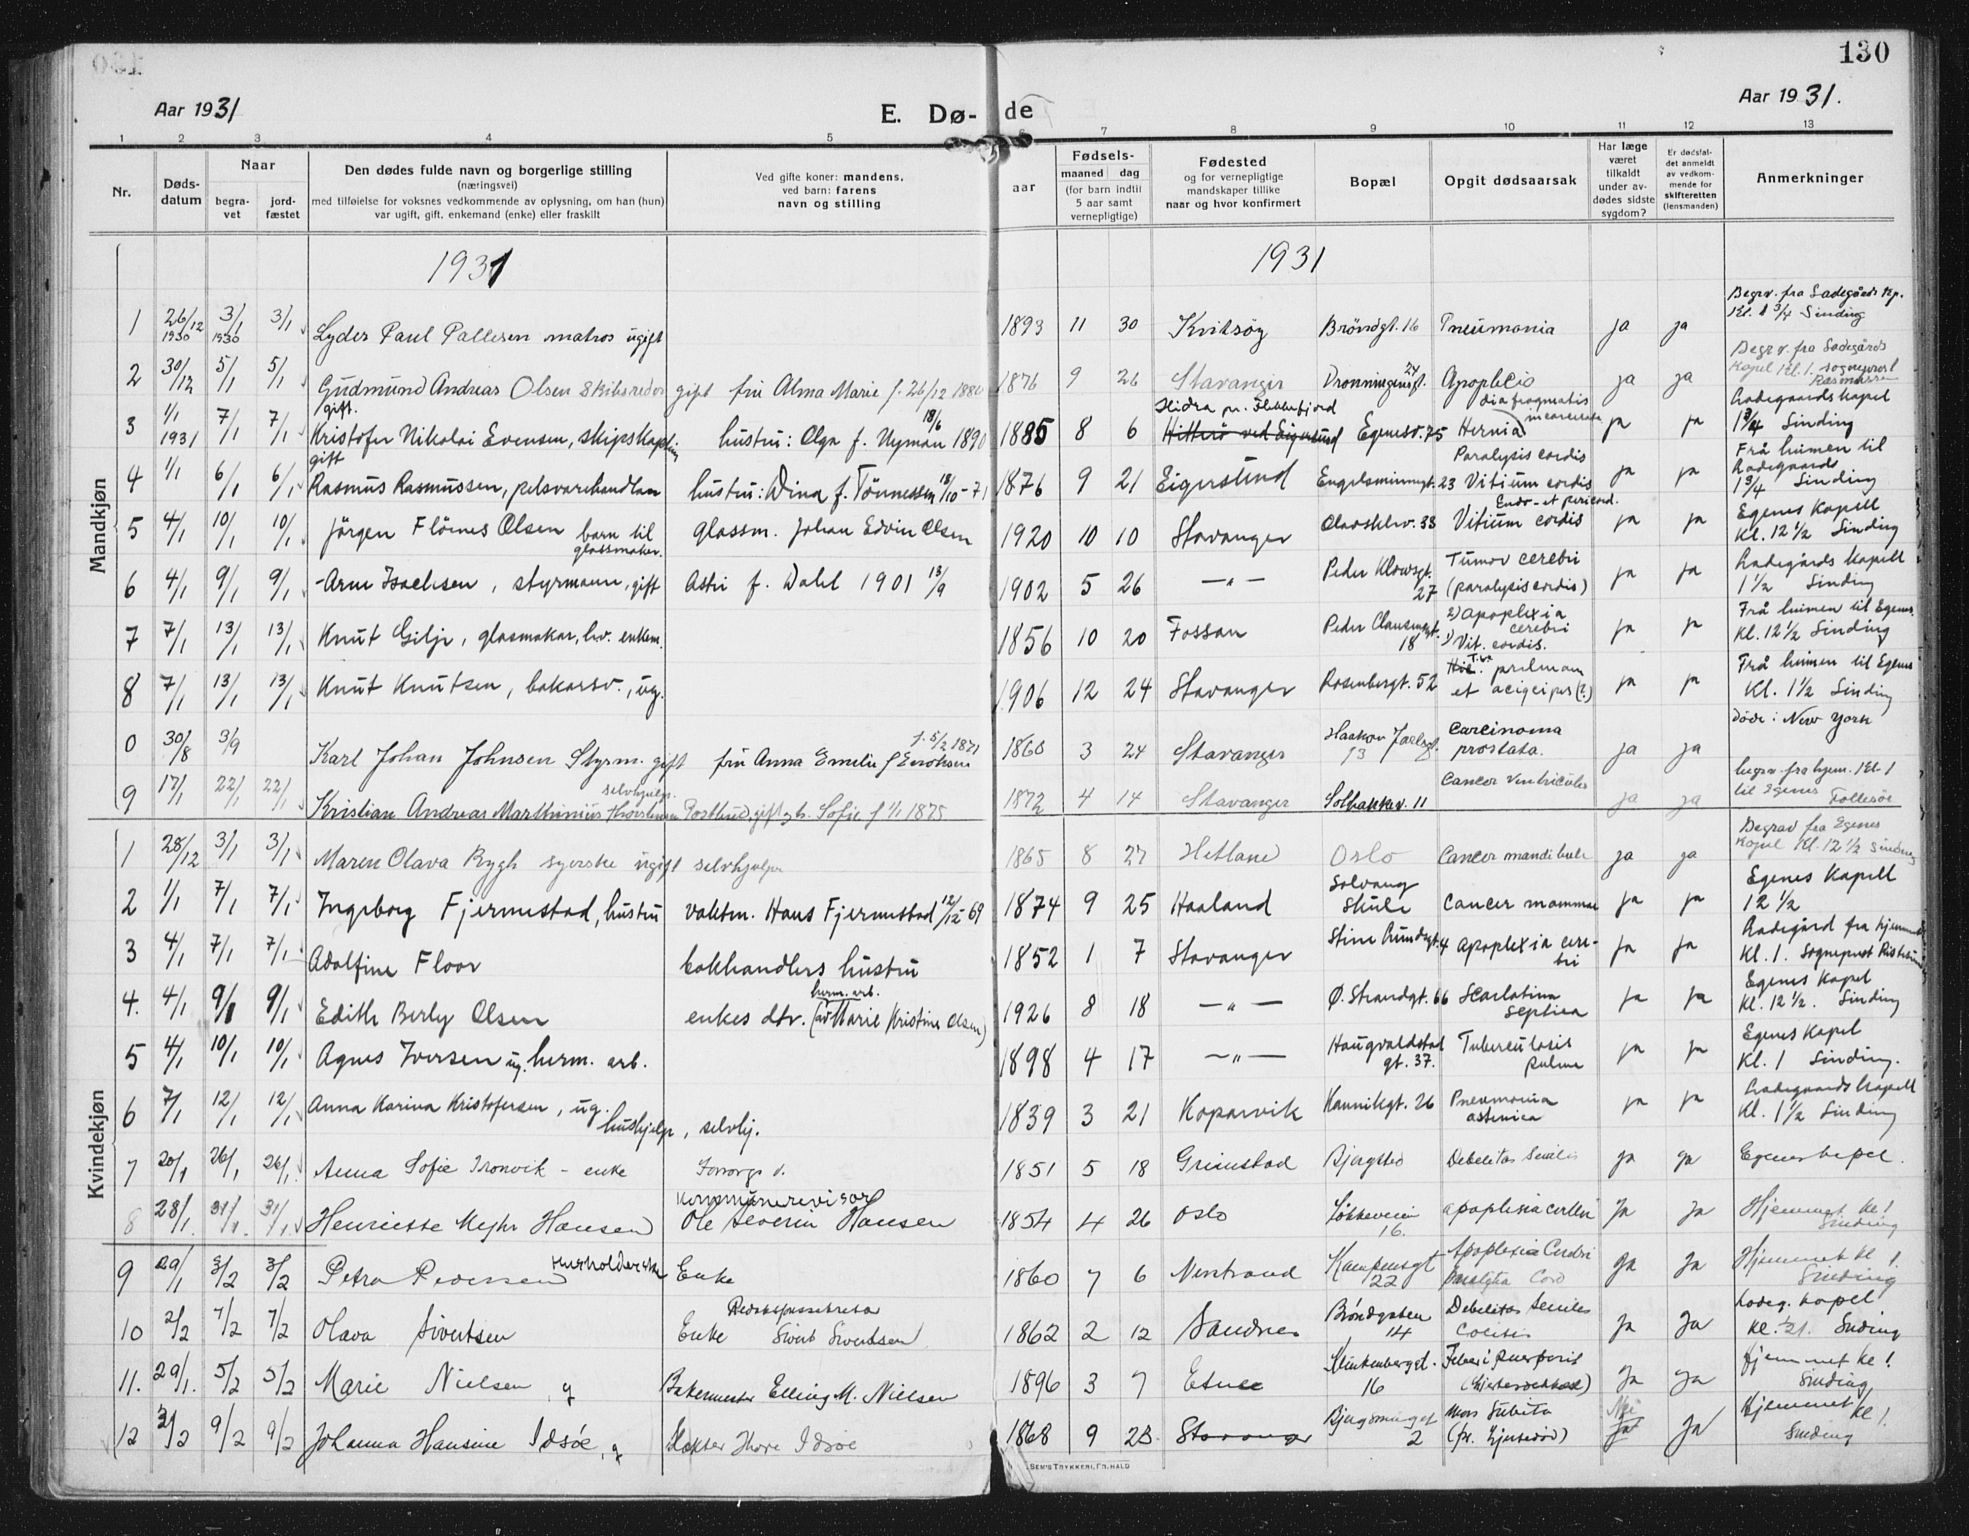 130
Aar 1931
E. Dø- de
Aar 1931.
1 2 3 4 5 6 7 8 9 10 11 12 13
Nr.
Døds-
datum
Naar
begra-
vet
jord-
fæstet
Den dødes fulde navn og borgerlige stilling
(næringsvei)
med tilføielse for voksnes vedkommende av oplysning, om han (hun)
var ugift, gift, enkemand (enke) eller fraskilt
Ved gifte koner: mandens,
ved barn: farens
navn og stilling
aar
Fødsels-
maaned dag
(for barn indtil
5 aar samt
vernepligtige)
Fødested
og for vernepligtige
mandskaper tillike
naar og hvor konfirmert
Bopæl
Opgit dødsaarsak
Har læge
været
tilkaldt
under av-
dødes sidste
sygdom?
Er dødsfal-
det anmeldt
av vedkom-
mende for
skifteretten
(lensmanden)
Anmerkninger
1931 1931
Mandkjøn
1 26/12 1930 3/1 1930 3/1 Lyder Paul Pallesen matros ugift 1893 11 30 Kvitsøy Brøndgt. 16 Pneumonia ja ja Begrv. fra Ladegårds kp. Kl. 1 3/4 Sinding
2 30/12 5/1 5/1 Gudmund Andreas Olsen Skibsreder gift fru Alma Marie f. 26/12 1880 1876 9 26 Stavanger Dronningensgt. 24 Apoplexio ja ja Begrv. fra Ladegårds Kapel Kl. 1. sogneprest
3 1/1 1931 7/1 7/1 gift. Kristofer Nikolai Evensen, skipskapt. hustru: Olga f. Nyman 18/6 1890 1885 8 6 Hidra pr. Flekkefjord Hitterø ved Eigersund Egenesv. 75 Hernia diafragmatis ja ja Ladegaards kapel 1 3/4 Sinding
4 1/1 6/1 6/1 gift Rasmus Rasmussen, pelsvarehandlar hustru: Dina f. Tønnessen 18/10-71 1876 9 21 Eigersund Engelsminnegt. 23 Paralysis cordis Vitium cordis ja ja Frå heimen til Ladegaards 1 3/4 Sinding
5 4/1 10/1 10/1 Jörgen Flörnes Olsen barn til glassmaker. glassm. Johan Edvin Olsen 1920 10 10 Stavanger Olavskleiv. 33 Endo- et pericard. Vitium cordis ja ja Egenes Kapell Kl. 12 1/2 Sinding
6 4/1 9/1 9/1 Arne Isachsen, styrmann, gift Astri f. Dahl 1901 13/9 1902 5 26 —„— Peder Klowsgt. 27 Tumor cerebri (paralysis cordis) ja ja Ladegårds kapell 1 1/2 Sinding
7 7/1 13/1 13/1 Knut Gilje, glasmakar, hv. enkem. 1856 10 20 Fossan Peder Clausensgt. 18 2) Apoplexia cerebri 1) Vit. cordis. ja ja Frå heimen til Egenes. Kl. 12 1/2 Sinding
8 7/1 13/1 13/1 Knut Knutsen, bakarsv., ug. 1906 12 24 Stavanger Rosenbergt. 52 ja ja Frå heimen til Egenes Kl. 1 1/2 Sinding
0 30/8 3/9 Karl Johan Johnsen Styrm. gift fru Anna Emelie f. 5/2 1871 1860 3 24 Stavanger Haakon Jarlsgt. 13 Carcinoma prostata. ja ja Døde i New York
9 17/1 22/1 22/1 Kristian Andreas Marthinius Thorstensen Postbud, gift selvhjulp. Sofie f 1/1 1875 1872 4 14 Stavanger Solbakkev. 11 Cancer ventriculi ja ja begrv. fra hjem. Kl. 1 til Egenes
Kvindekjøn
1 28/12 3/1 3/1 Maren Olava Rygh syerske ugift selvhjulpen 1865 8 27 Hetland Oslo Cancer mandibule ja ja Begrav fra Egenes Kapel Kl. 12 1/2 Sinding
2 1/1 7/1 7/1 Ingeborg Fjermestad, hustru vaktm. Hans Fjermestad 12/12-69 1874 9 25 Haaland Solvang Skule Cancer mammae ja ja Egenes Kapell 12 1/2
3 4/1 7/1 7/1 Adolfine Floor bokhandlers hustru 1852 1 7 Stavanger Apoplexia cerebri ja ja Ladegård fra hjemmet Kl. 1. Sogneprest
4. 4/1 9/1 9/1 Edith Berly Olsen enkes dtr. (av herm. arb. Marie Kristine Olsen) 1926 8 18 —„— Ø. Strandgt. 66 Scarlatina septica ja ja Egenes Kapel Kl. 12 1/2. Sinding
5 4/1 10/1 10/1 Agnes Iversen ug. herm. arb. 1898 4 17 —„— Haugvaldstad gt. 37. Tuberculosis pulm. ja ja Egenes Kapel Kl. 1 Sinding.
6 7/1 12/1 12/1 Anna Karina Kristofersen, ug. hushjelp, selvhj. 1839 3 21 Kopervik Kannikgt. 26 Pneumonia astenica ja ja Ladegaards kapell Kl. 1 1/2 Sinding
7 20/1 26/1 26/1 Anna Sofie Tronvik – enke Forsorgs v. 1851 5 18 Grimstad Bjergsted Debelitas Senilis ja ja Egenes kapel.
8 28/1. 31/1. 31/1. Henriette Myhr Hansen Kommunerevisor Ole Severin Hansen 1854 4 26 Oslo Løkkeveien 16. apoplexia cerebri ja ja Hjemmet kl 1 Sinding
9 29/1 3/2 3/2 Petra Pedersen Husholderske Enke 1860 7 6 Nerstrand Kampensgt 22 Apoplexia Cerebri ja ja Hjemmet kl 1. Sinding
10 2/2 7/2 7/2 Olava Sivertsen Enke Sivert Sivertsen 1862 2 12 Sandnes Brøndgaten 14 Debelitas Seniles Colitis ja ja Ladeg. kapel Sinding
11. 29/1. 5/2 5/2 Marie Nielsen g Bakermester Elling M. Nielsen 1896 3 7 Etne Klinkenberggt. 16 ja ja Hjemmet kl 1. Sinding
12 3/2 9/2 9/2 Johanna Hansine Idsøe, g Slakter Thore Idsøe 1868 9 23 Stavanger 2 Mors Subita (pr. hjertedød) Nei ja ja Hjemmet kl 1. Sinding
SEM'S TRYKKERI, FR.HALD